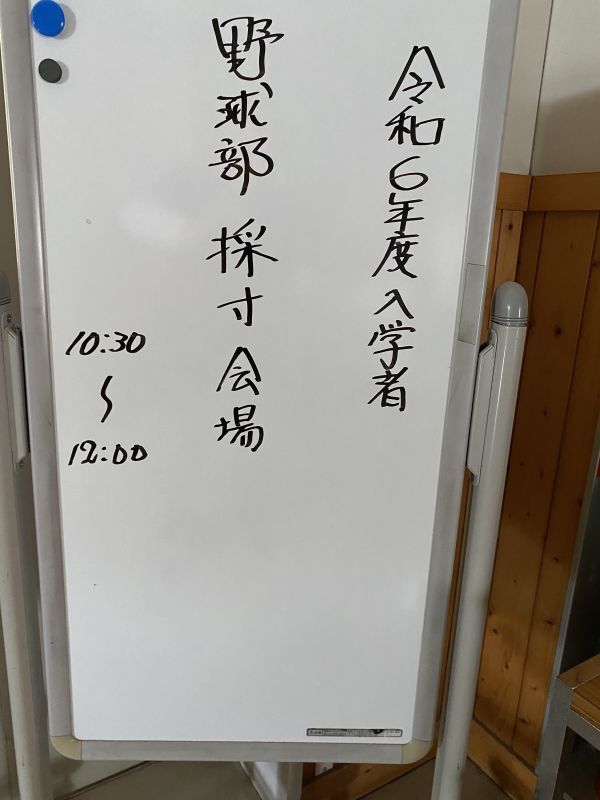 令和6年度入学者
野球部 採寸会場
10:30
〜
12:00